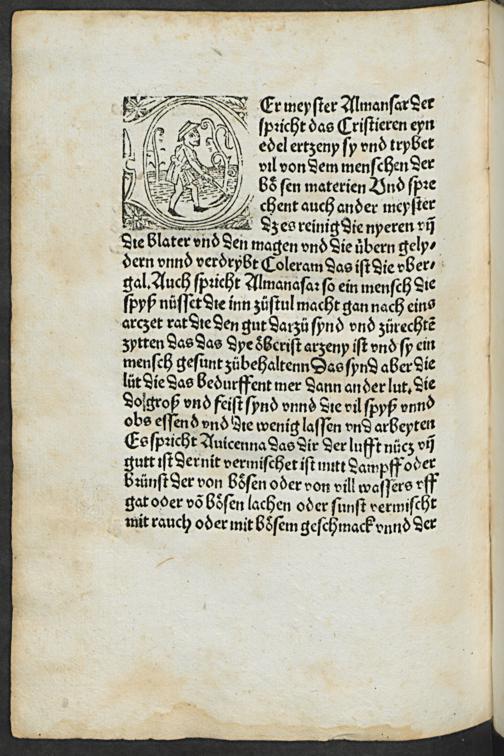 DEr meyster Almansar der
spricht das Cristieren eyn
edel ertzeny sy vnd trybet
vil von dem menschen der
bösen materien Vnd spre
chent auch ander meyster
dz es reinig die nyeren vn̄
die blater vnd den magen vnd die übern gely⸗
dern vnnd verdrybt Coleram das ist die vber⸗
gal. Auch spricht Almanasar so ein mensch die
spyß nüsset die inn zůstul macht gan nach eins
arczet rat die den gut darzů synd vnd zůrechtē
zytten das das dye öberist arzeny ist vnd sy ein
mensch gesunt zůbehaltenn Das synd aber die
lüt die das bedurffent mer dann ander lut, die
do groß vnd feist synd vnnd die vil spyß vnnd
obs essend vnd die wenig lassen vnd arbeyten
Es spricht Auicenna das dir der lufft nücz vn̄
gutt ist der nit vermischet ist mitt dampff oder
brünst der von bösen oder von vill wassers vff
gat oder vō bösen lachen oder sunst vermischt
mit rauch oder mit bösem geschmack vnnd der